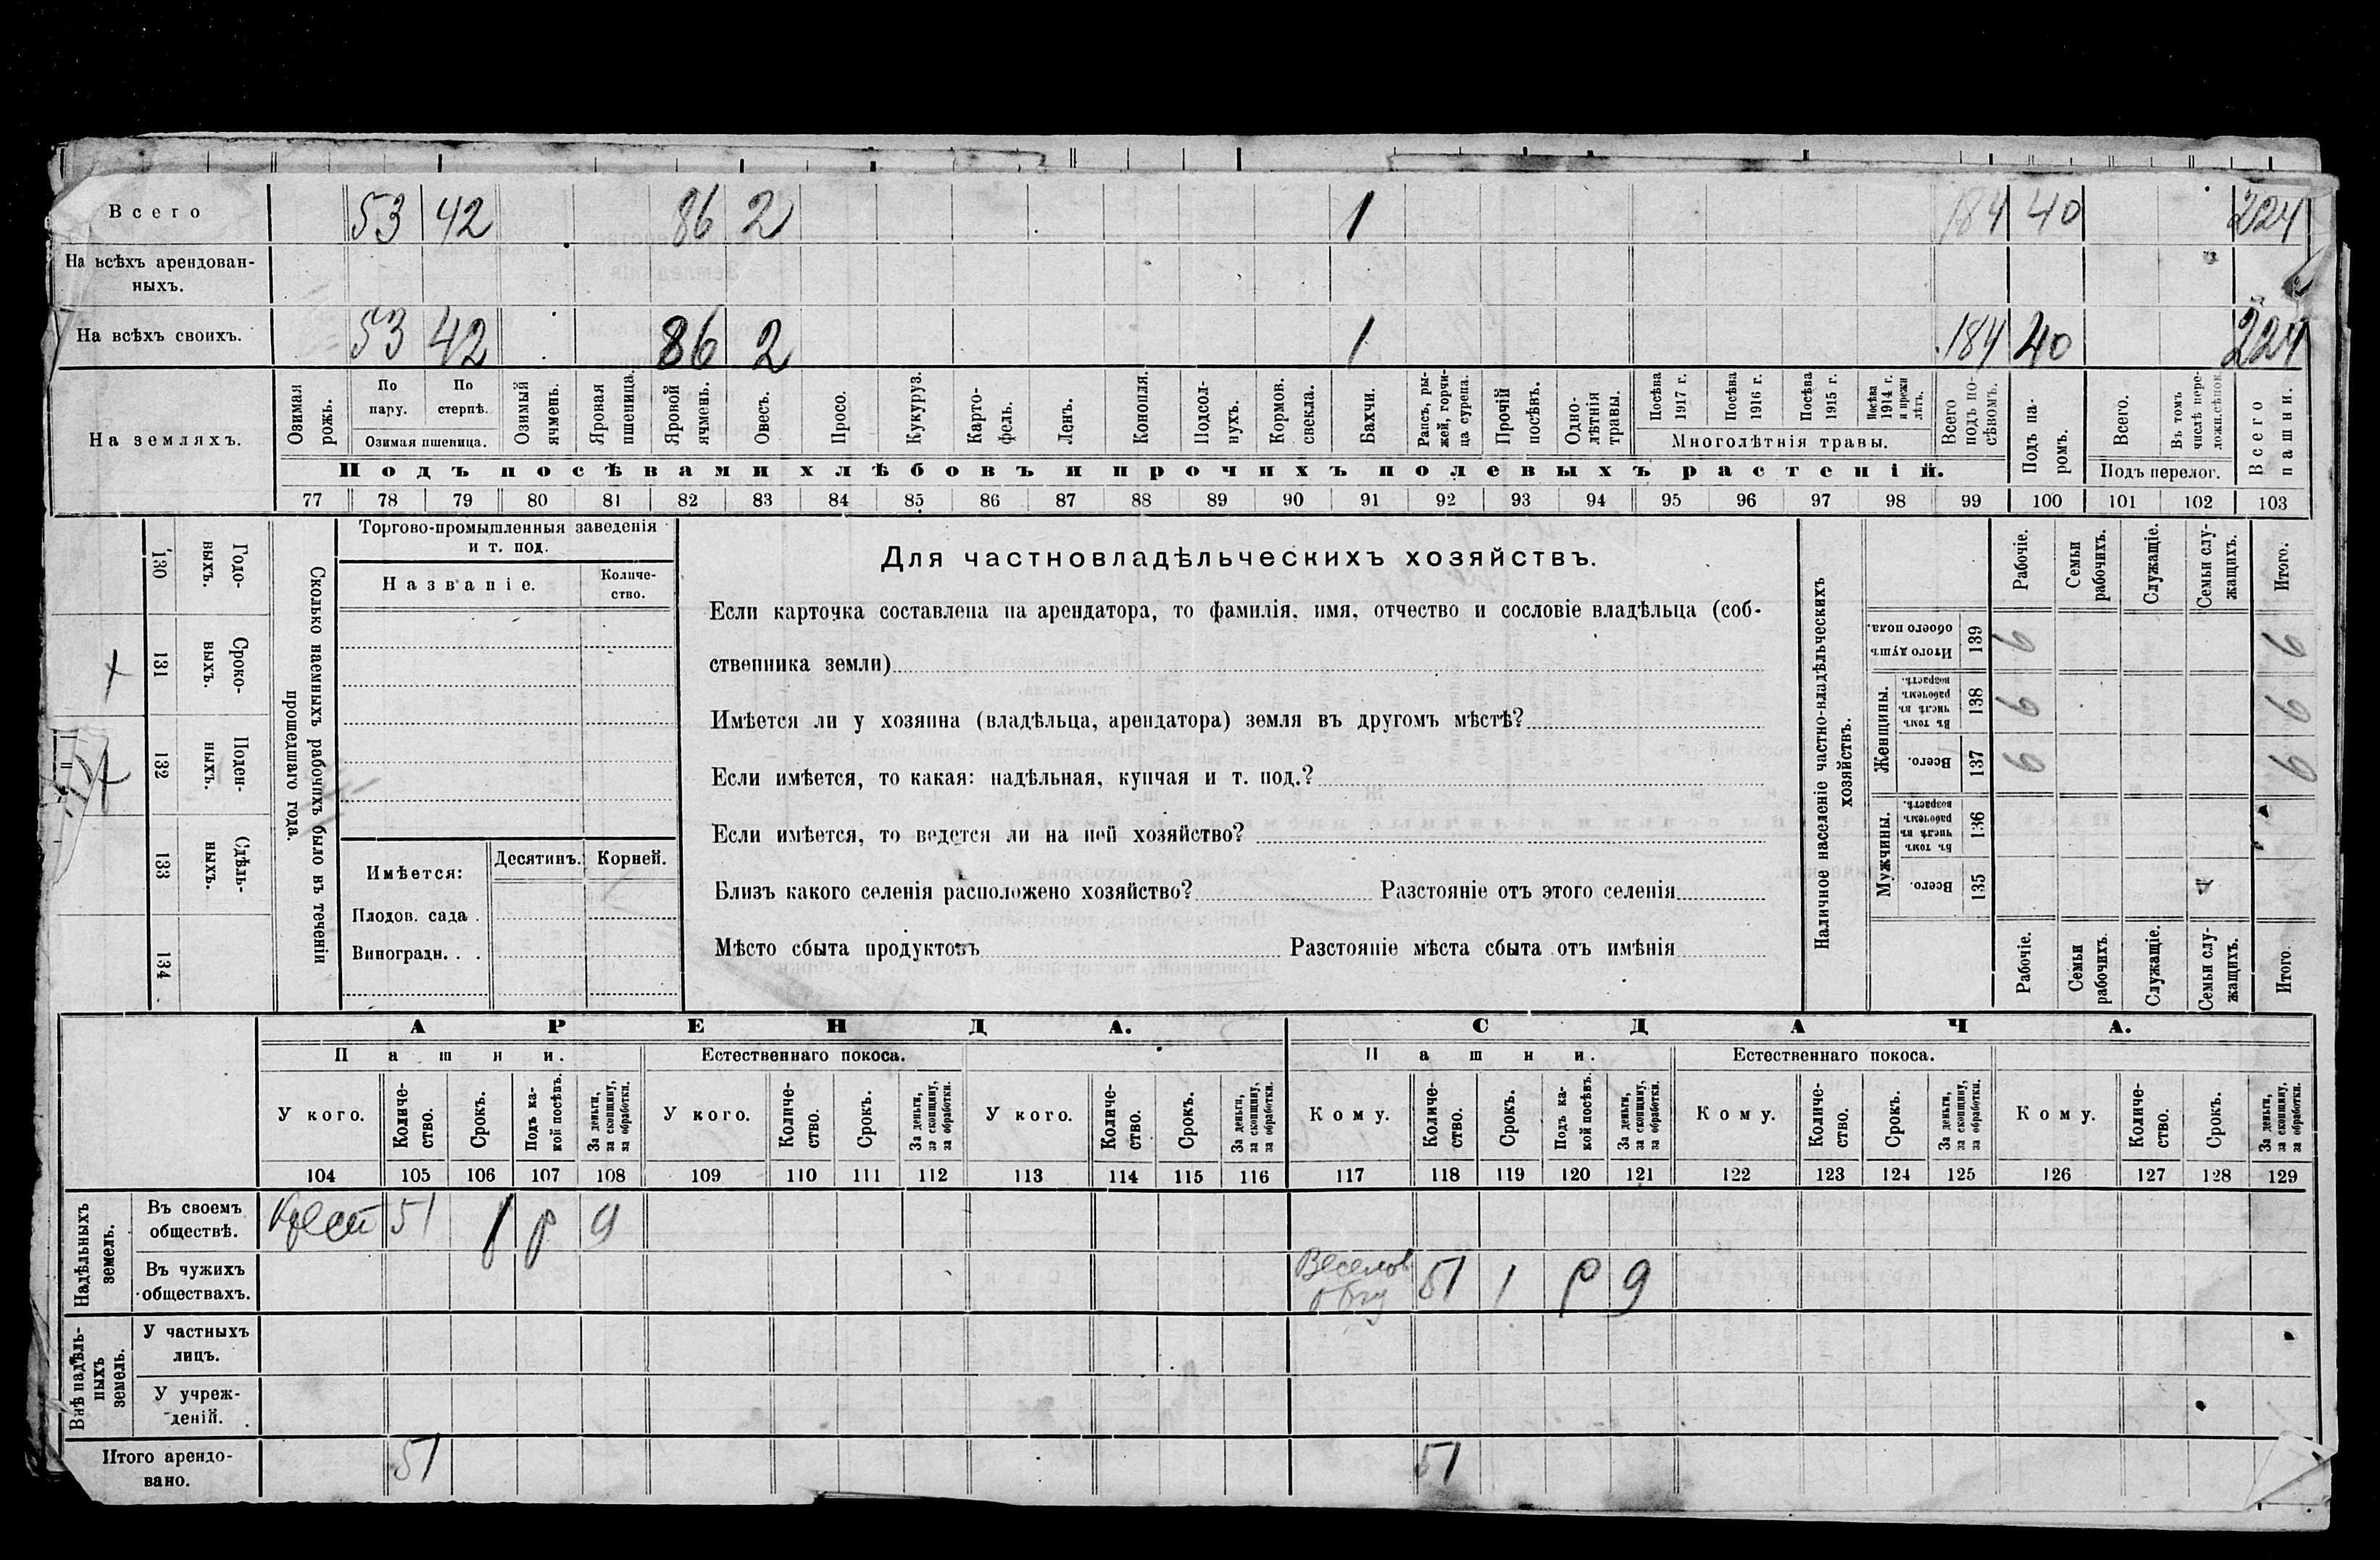 Всего 53 42 86 2 1 184 40 224
На всѣхъ арендован-
ныхъ.
На всѣхъ своихъ. 53 42 86 2 1 184 40 224
На земляхъ.
Озимая рожь.
По пару.
По стерпѣ.
Озимая пшеница.
Озимый ячмень.
Яровая пшеница.
Яровой ячмень.
Овесъ.
Просо.
Кукуруз.
Карто-
фель.
Ленъ.
Конопля.
Подсол-
нухъ.
Кормов.
свекла.
Бахчи.
Рапсъ, ры-
жей, горчи-
ца сурепа.
Прочій посѣвъ.
Одно-
лѣтнія
травы.
Посѣва 1917 г.
Посѣва 1916 г.
Посѣва 1915 г.
Посѣва 1914 г. и прежн лѣтъ.
Многолѣтнія травы.
Всего подъ по-
сѣвомъ.
Подъ па-
ромъ.
Всего.
Въ томъ числѣ пере-
ложн.сѣнок.
Подъ перелог.
Всего пашни.
Подъ посѣвами хлѣбовъ и прочихъ полевыхъ растеній.
77 78 79 80 81 82 83 84 85 86 87 88 89 90 91 92 93 94 95 96 97 98 99 100 101 102 103
Сколько наемныхъ рабочихъ было въ теченіи
прошедшаго года.
Годо-
выхъ.
130
Сроко-
выхъ.
131
Поден-
ныхъ.
132
Сдѣль-
ныхъ.
133
134
Торгово-промышленныя заведенія
и т. под.
Названіе.
Количе-
ство.
Имѣется:
Десятинъ.
Корней.
Плодов. сада .
Виноградн. . .
Для частновладѣльческихъ хозяйствъ.
Если карточка составлена на арендатора, то фамилія, имя, отчество и сословіе владѣльца (соб-
ственника земли)
Имѣется ли у хозяина (владѣльца, арендатора) земля въ другомъ мѣстѣ?
Если имѣется, то какая: надѣльная, купчая и т. под.?
Если имѣется, то ведется ли на ней хозяйство?
Близъ какого селенія расположено хозяйство? Разстояніе отъ этого селенія
Мѣсто сбыта продуктовъ Разстояніе мѣста сбыта отъ имѣнія
Наличное населеніе частно-владѣльческихъ
хозяйствъ.
Рабочіе.
Семьи рабочихъ.
Служащіе.
Семьи слу-
жащихъ.
Итого.
Итого душъ обоего пола. 139 9 9
Женщины.
Въ томъ числѣ въ рабочемъ возрастѣ. 138 9 9
Всего. 137 9 9
Мужчины.
Въ томъ числѣ въ рабочемъ возрастѣ. 136
Всего. 135
Рабочіе.
Семьи рабочихъ.
Служащіе.
Семьи слу-
жащихъ.
Итого
АРЕНДА. СДАЧА.
Пашни. Естественнаго покоса. Пашни. Естественнаго покоса.
У кого.
Количе-
ство.
Срокъ.
Подъ ка-
кой посѣвъ.
За деньги,
за скопщину,
за обработки.
У кого.
Количе-
ство.
Срокъ.
За деньги,
за скопщину,
за обработки.
У кого.
Количе-
ство.
Срокъ.
За деньги,
за скопщину,
за обработки.
Кому.
Количе-
ство.
Срокъ.
Подъ ка-
кой посѣвъ.
За деньги,
за скопщину,
за обработки.
Кому.
Количе-
ство.
Срокъ.
За деньги,
за скопщину,
за обработки.
Кому.
Количе-
ство.
Срокъ.
За деньги,
за скопщину,
за обработки.
104 105 106 107 108 109 110 111 112 113 114 115 116 117 118 119 120 121 122 123 124 125 126 127 128 129
Надѣльныхъ
земель.
Въ своемъ
обществѣ.
51 р 9
Въ чужихъ
обществахъ.
51 1 р 9
Внѣ надѣль-
ныхъ
земель.
У частныхъ
лицъ.
У учреж-
деній.
Итого арендо-
вано.
51 51